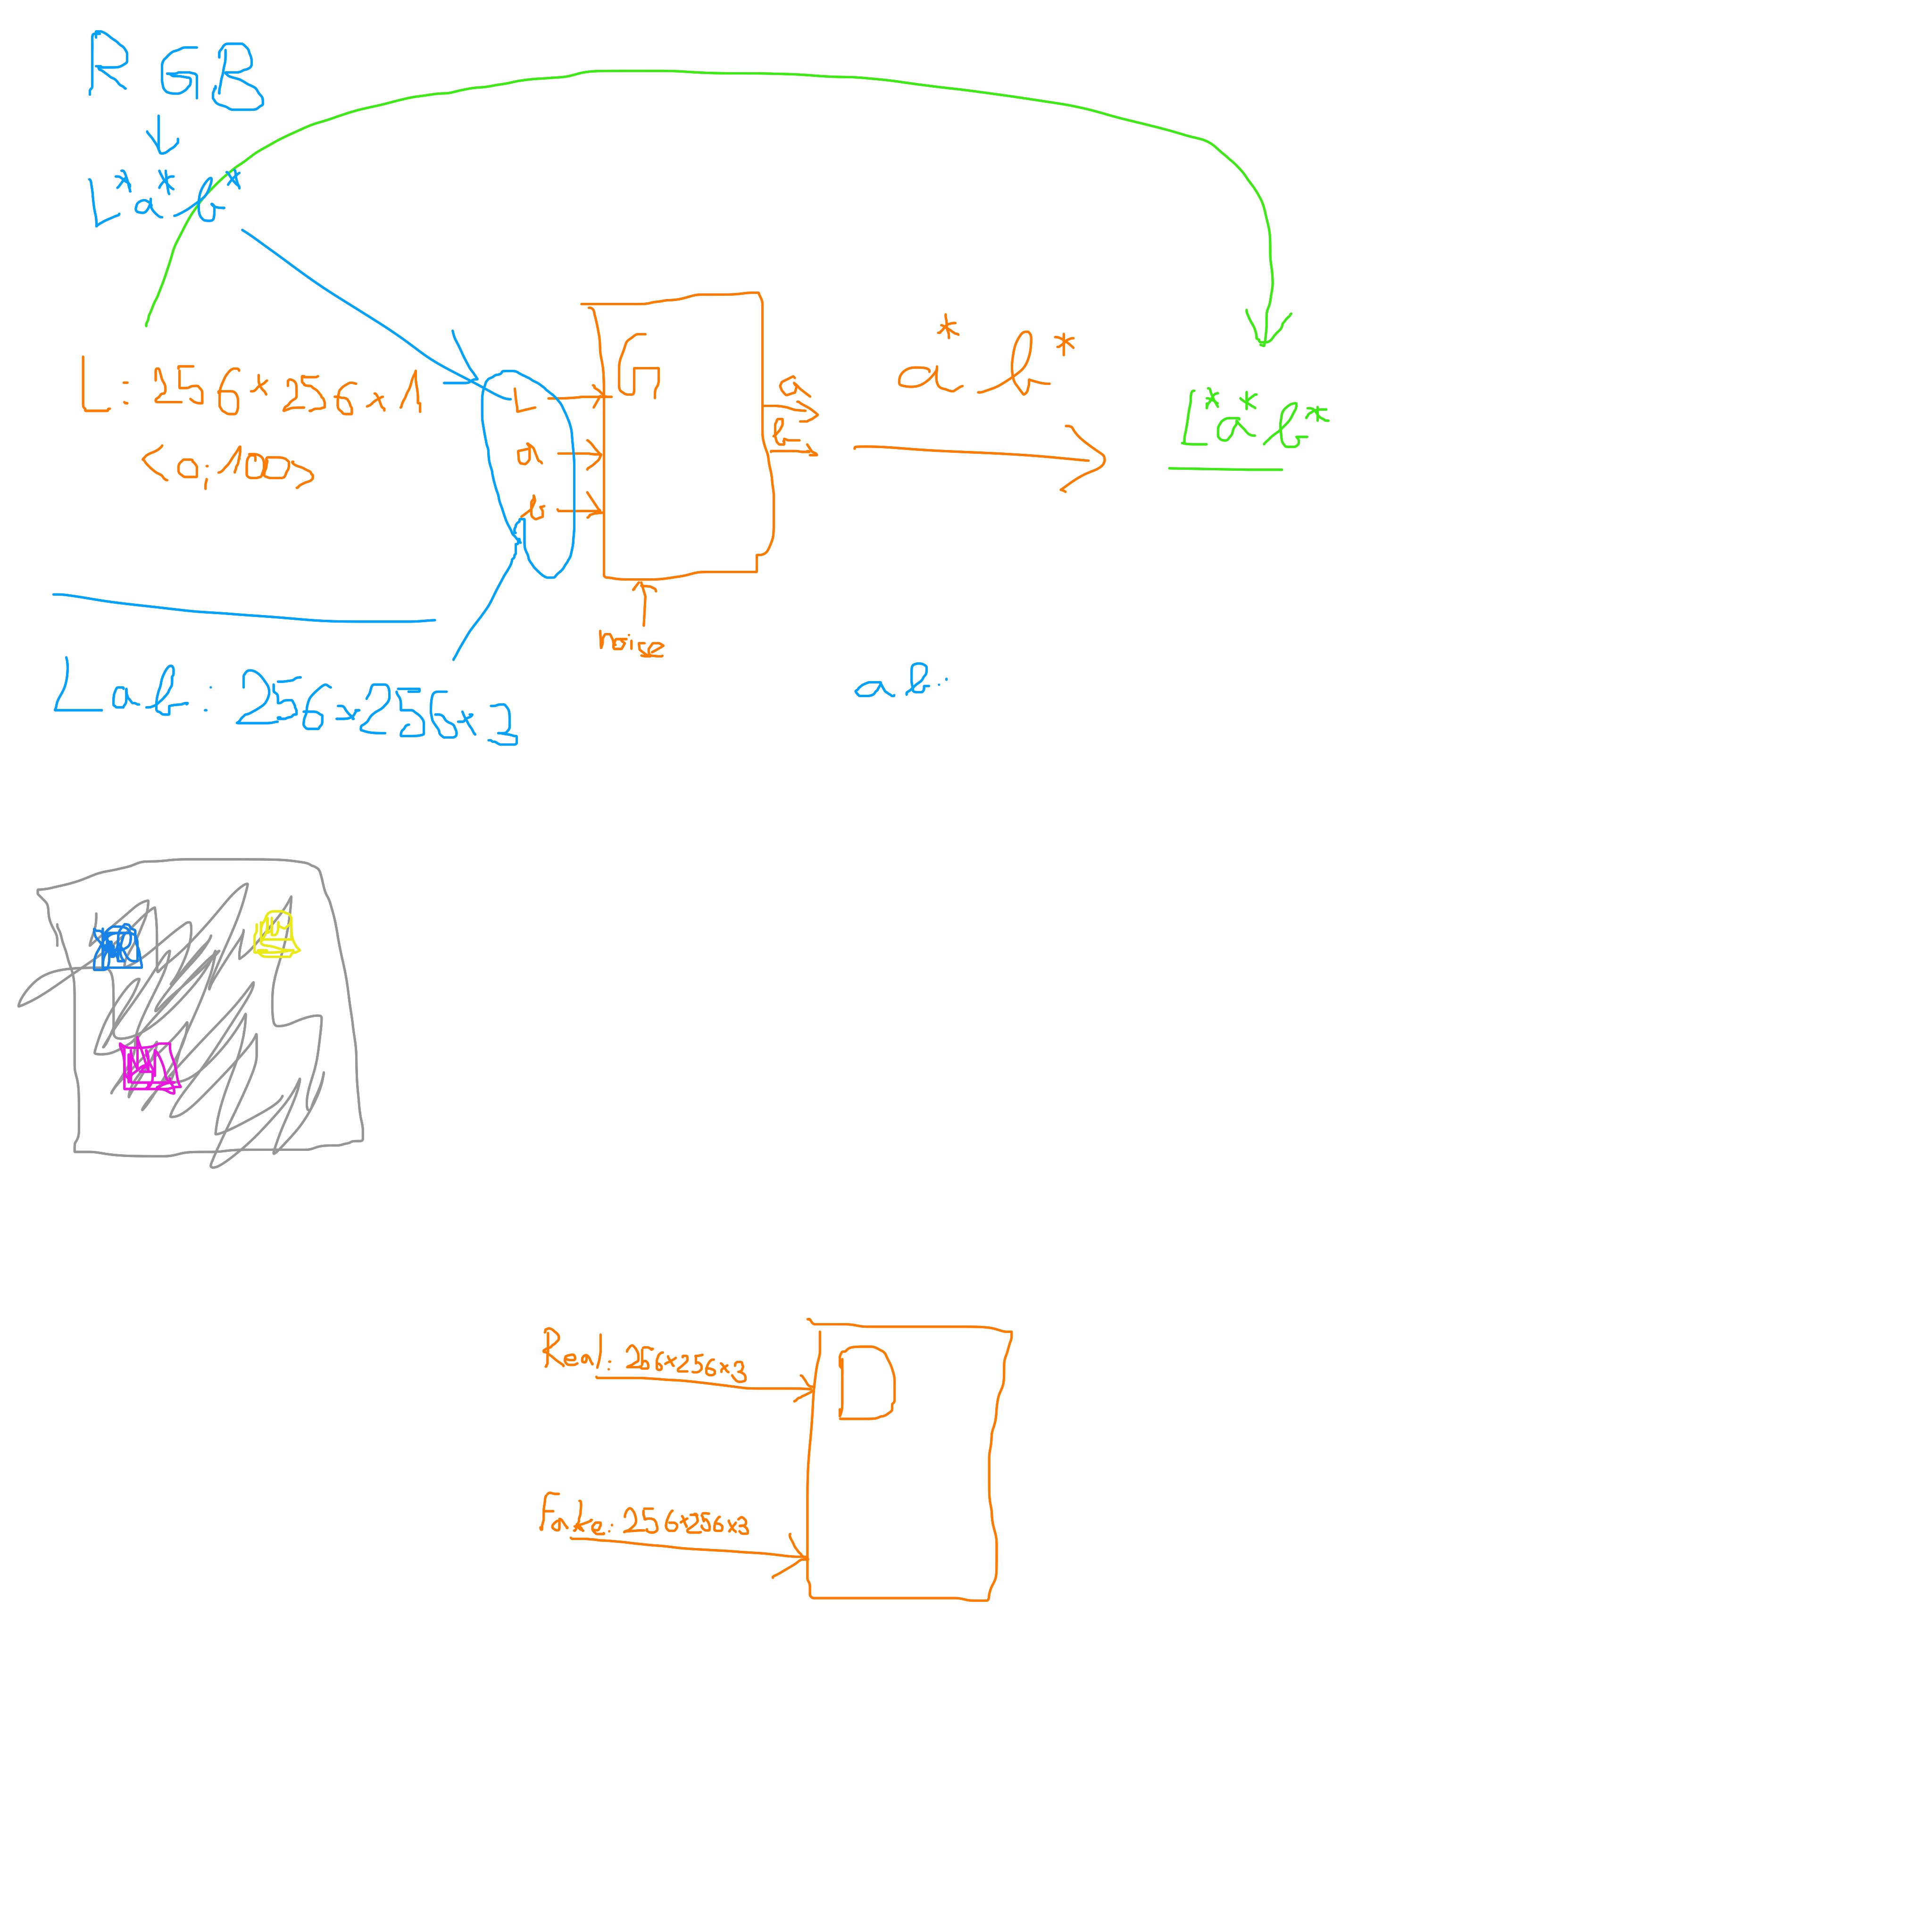 RGB
L*a*b*
L: 256×256×1
<0,100>
L
a
b
G
a
b
a*b*
L*a*b*
noise
Lab: 256×256×3
ab:
Real: 256×256×3
D
Fake: 256×256×3